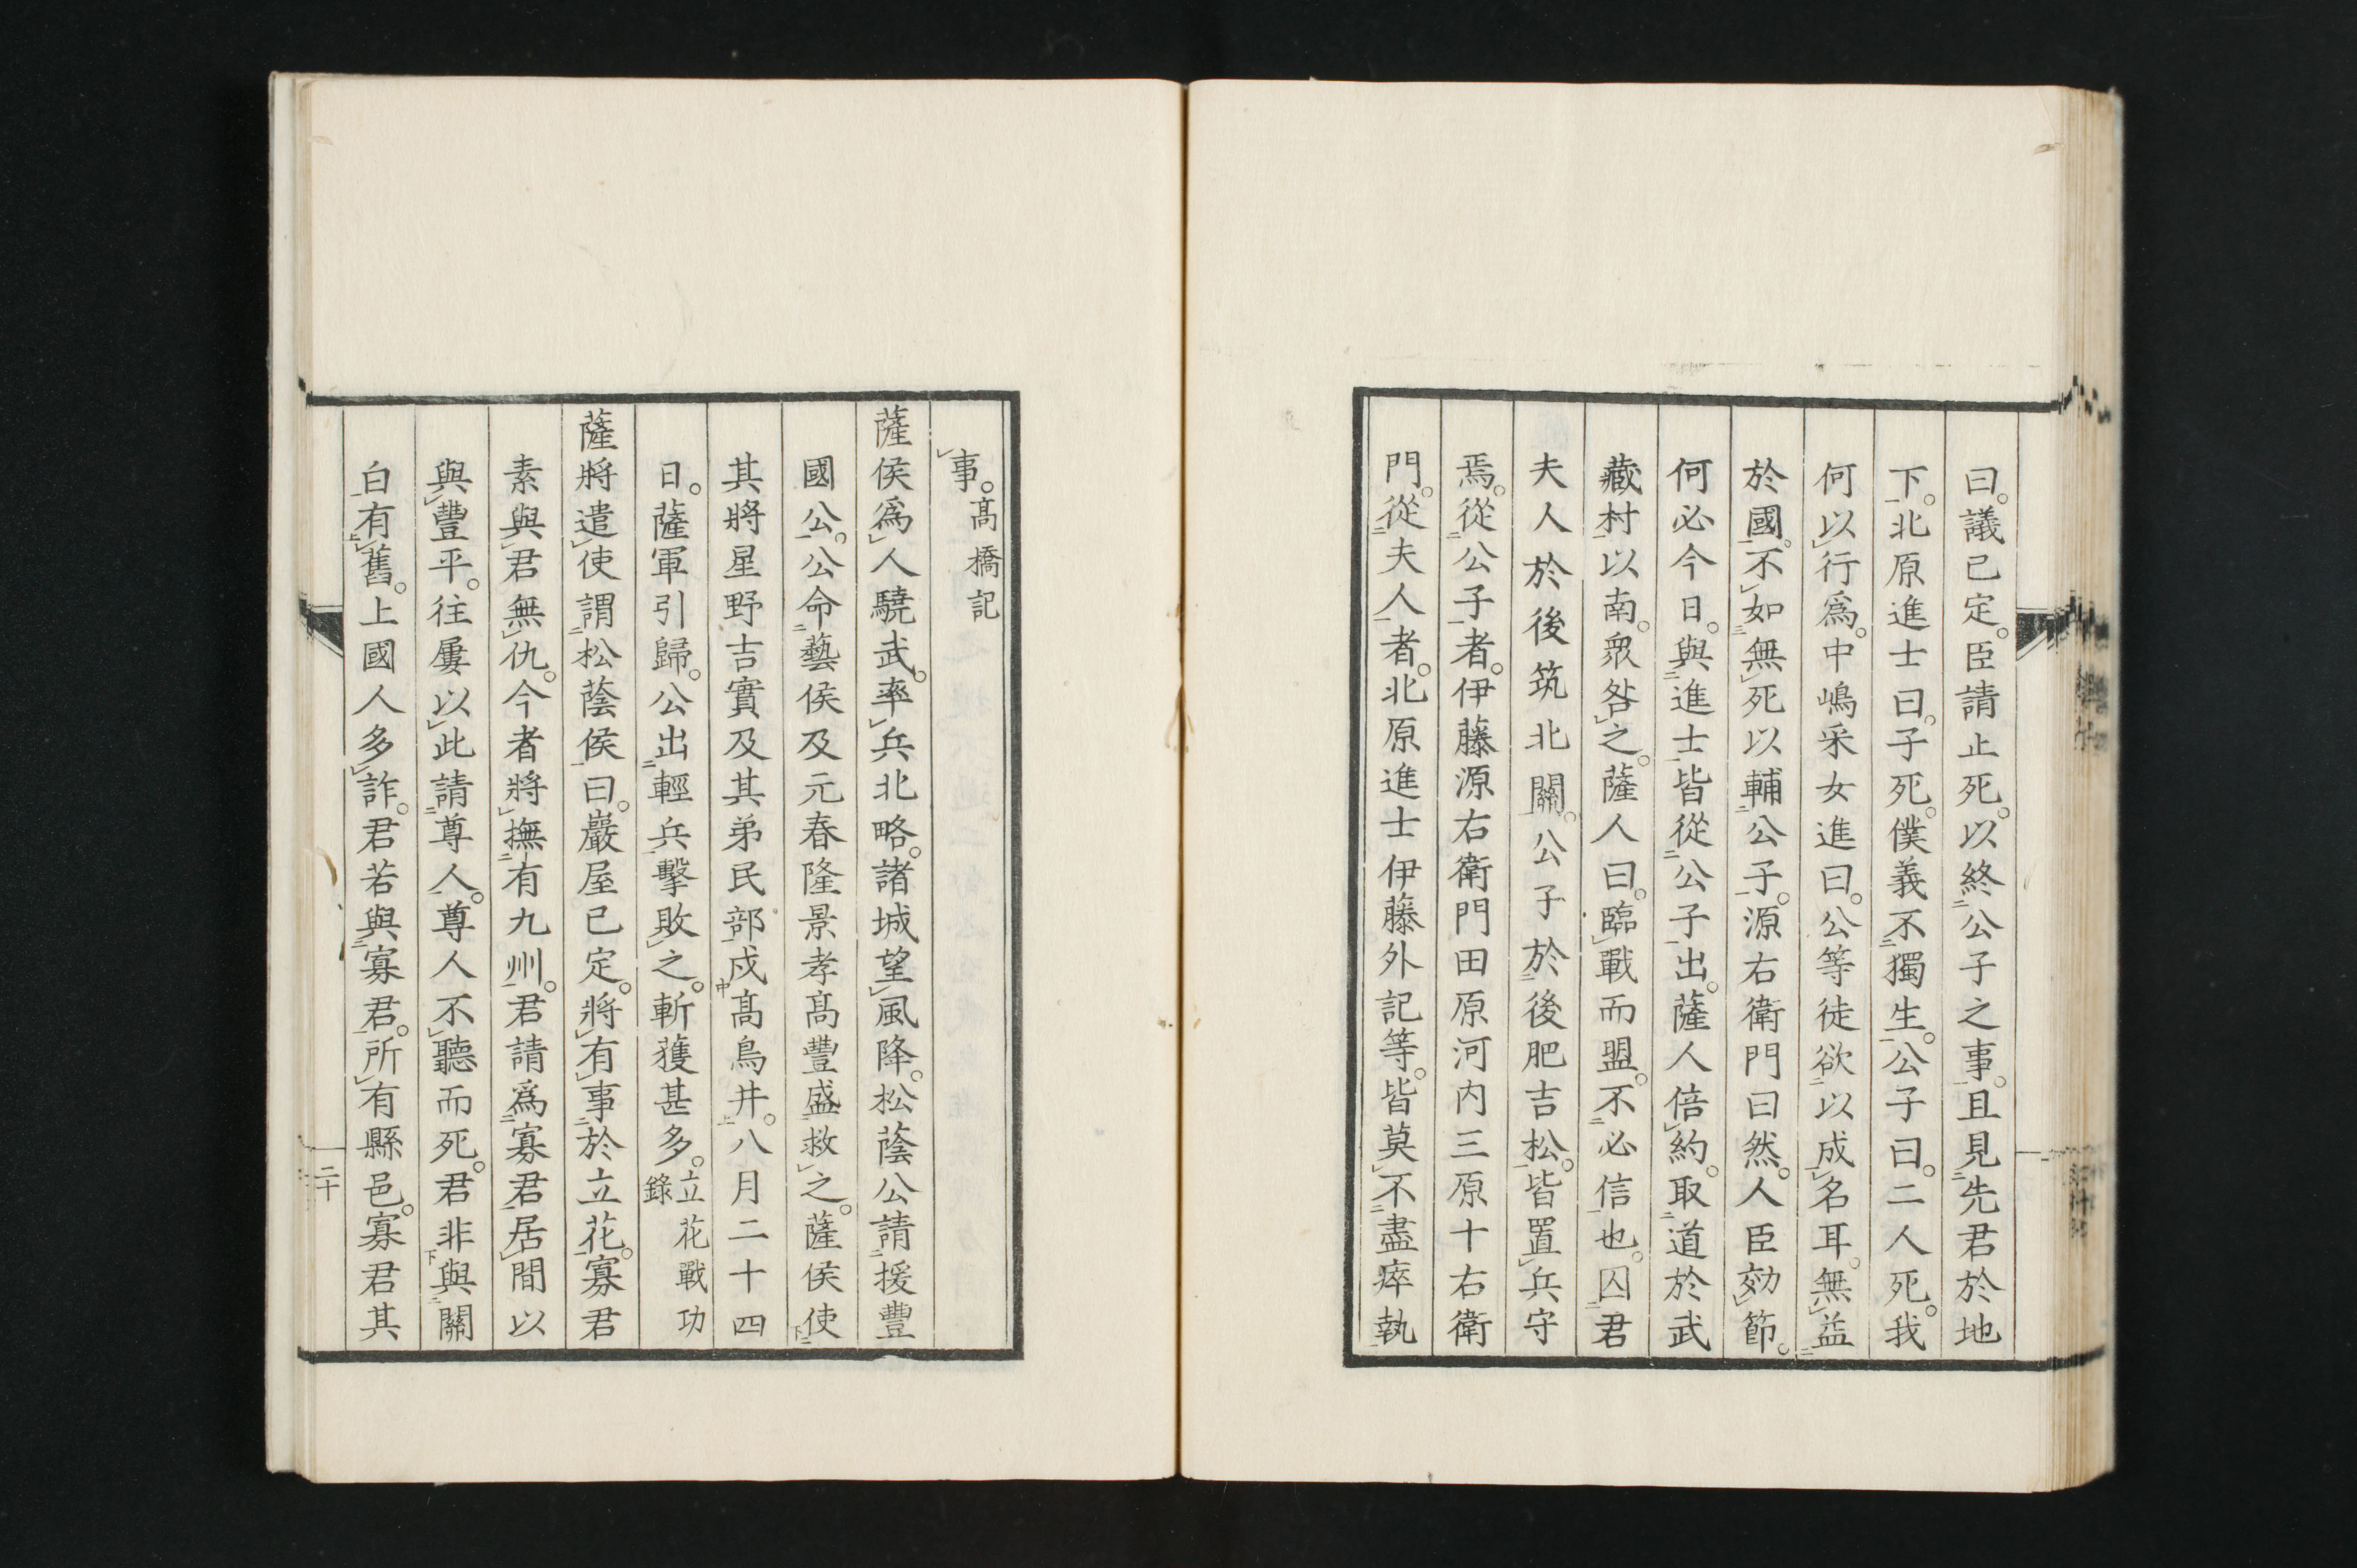 曰。議已定。臣請止死。以終公子之事。且見先君於地
下。北原進士曰。子死。僕義不獨生。公子曰。二人死。我
何以行爲。中嶋采女進曰。公等徒欲以成名耳。無益
於國。不如無死以輔公子。源右衛門曰然。人臣効節。
何必今日。與進士皆從公子出。薩人倍約。取道於武
藏村以南。衆咎之。薩人曰。臨戰而盟。不必信也。囚君
夫人於後筑北關。公子於後肥吉松。皆置兵守
焉。從公子者。伊藤源右衛門田原河内三原十右衛
門。從夫人者。北原進士伊藤外記等。皆莫不盡瘁執
事。高橋記
薩侯爲人驍武。率兵北略。諸城望風降。松蔭公請援豐
國公。公命藝侯及元春隆景孝高豐盛救之。薩侯使
其將星野吉實及其弟民部戍高鳥井。八月二十四
日。薩軍引歸。公出輕兵擊敗之。斬獲甚多。立花戰功錄
薩將遣使謂松蔭侯曰。巖屋已定。將有事於立花。寡君
素與君無仇。今者將撫有九州。君請爲寡君居間以
與豐平。往屢以此請尊人。尊人不聽而死。君非與關
白有舊。上國人多詐。君若與寡君。所有縣邑。寡君其
二十